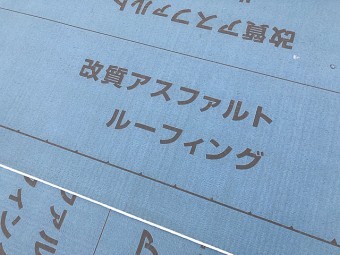 改質アスファルト
改質アスファルト
ルーフィング